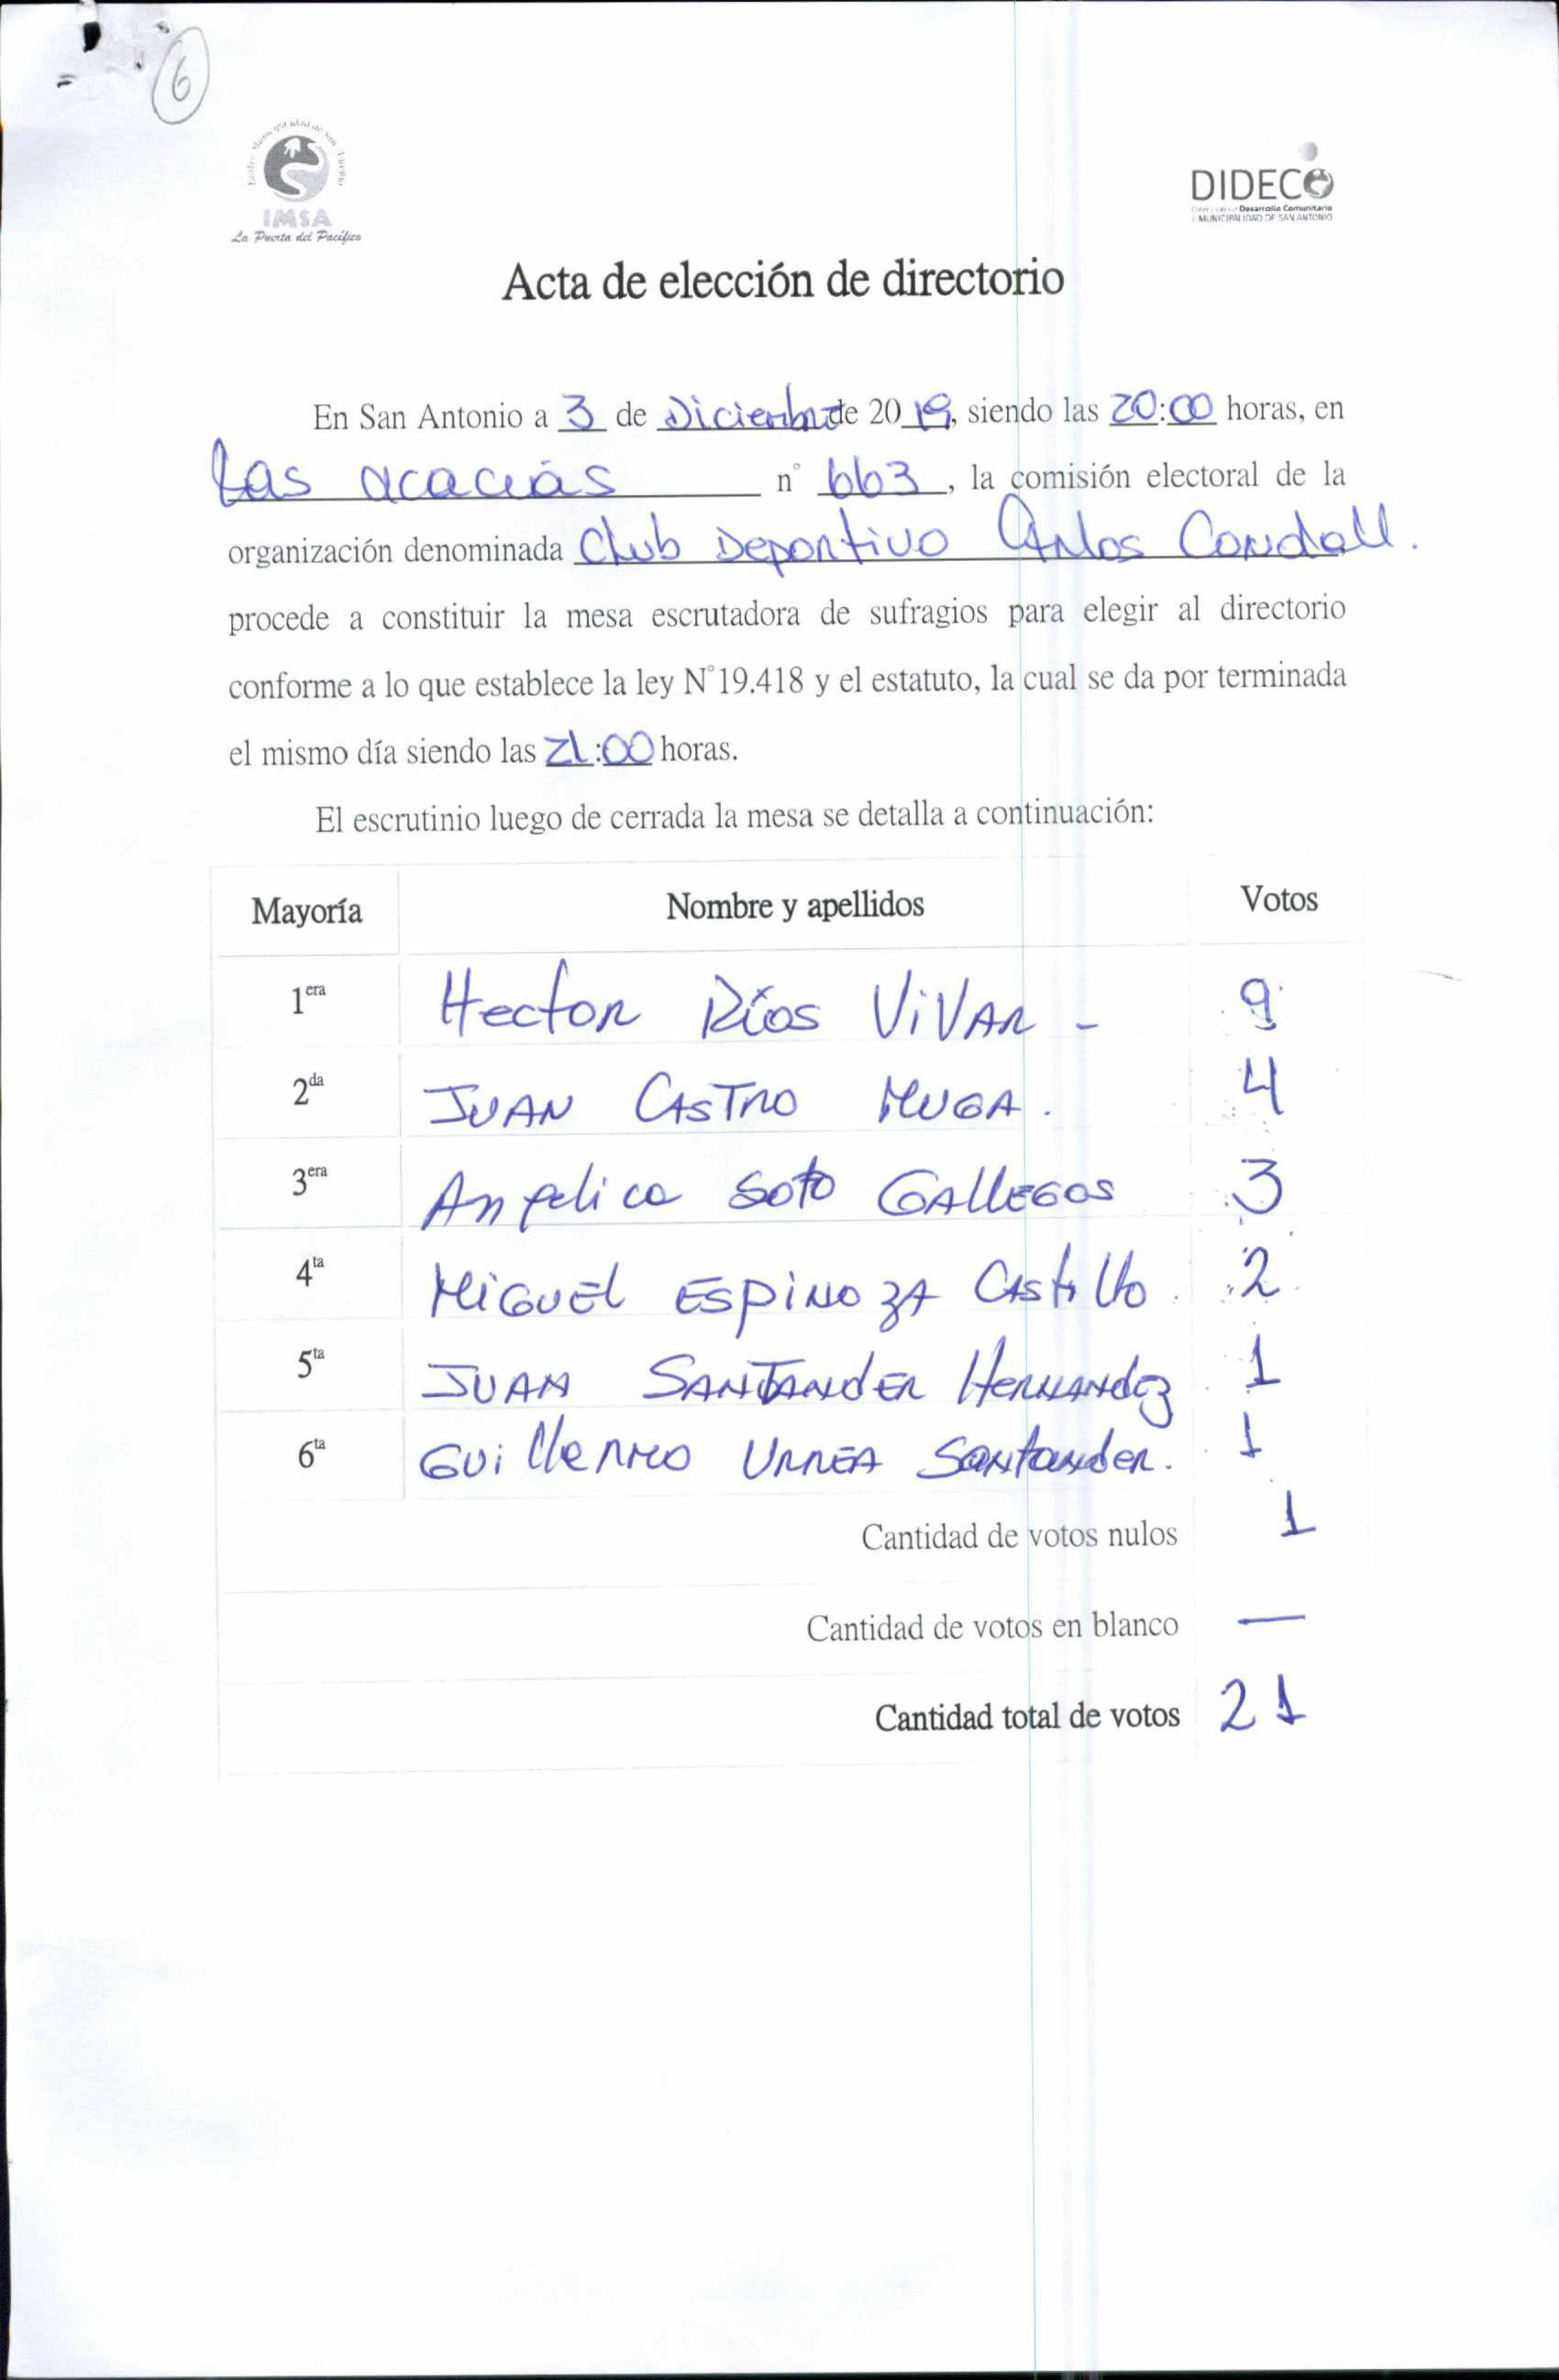 6
IMSA
La Puerta del Pacífico
DIDECO
Desarrollo Comunitario
MUNICIPALIDAD DE SAN ANTONIO
Acta de elección de directorio
En San Antonio a 3 de Diciembre de 2019, siendo las 20:00 horas, en
Las acacias n° 663, la comisión electoral de la
organización denominada Club Deportivo Carlos Condall.
procede a constituir la mesa escrutadora de sufragios para elegir al directorio
conforme a lo que establece la ley N°19.418 y el estatuto, la cual se da por terminada
el mismo día siendo las 21:00 horas.
El escrutinio luego de cerrada la mesa se detalla a continuación:
Mayoría Nombre y apellidos Votos
1era Hector Ríos ViVAR - 9
2da JUAN CASTRO MUGA. 4
3era Angelica Soto GAllEGOS 3
4ta MiGUEl ESPiNOzA CAstillo. 2
5ta JUAN SANTANdER HERNANdez 1
6ta GUillermo URREA Santander. 1
Cantidad de votos nulos 1
Cantidad de votos en blanco —
Cantidad total de votos 21